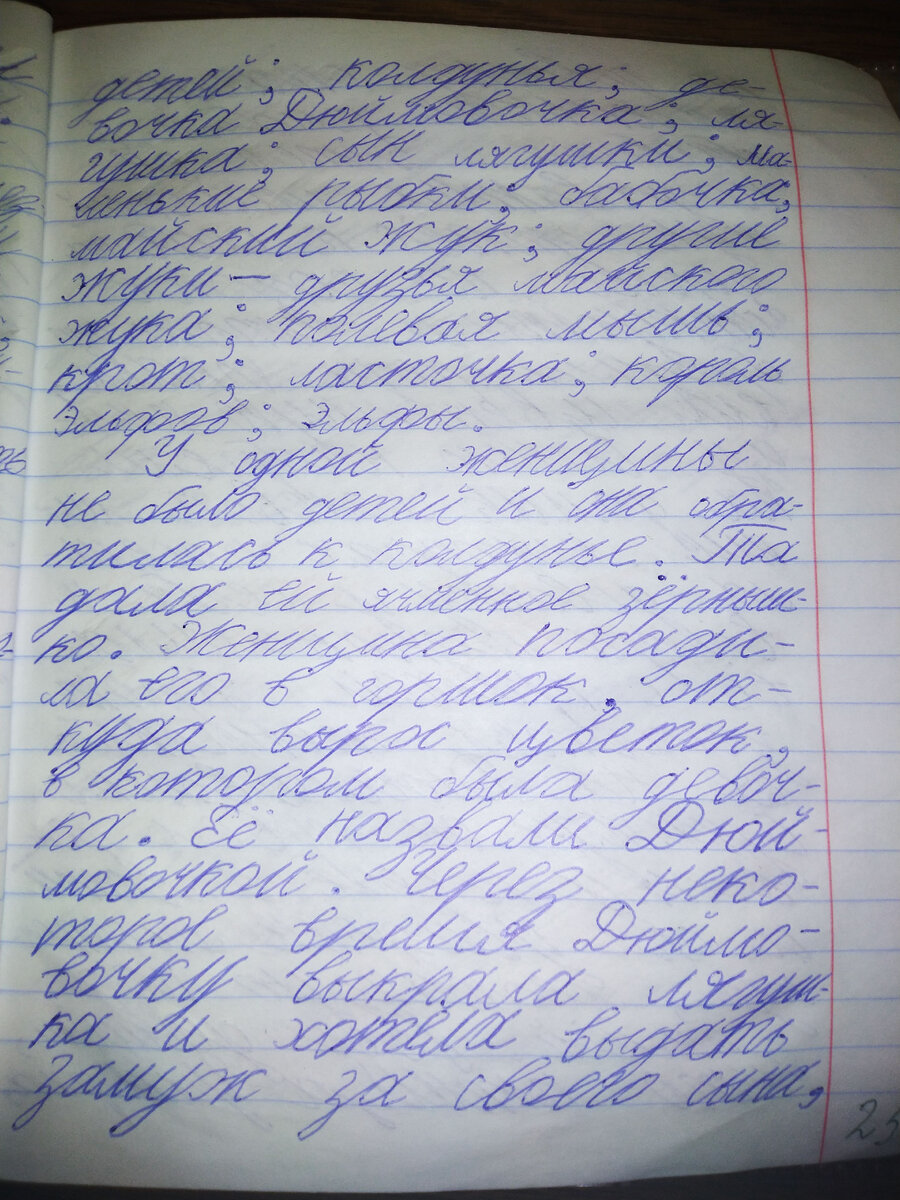 детей; колдунья; де-
вочка Дюймовочка; ля-
гушка; сын лягушки; ма-
ленькие рыбки; бабочка,
майский жук; другие
жуки — друзья майского
жука; полевая мышь;
крот; ласточка; король
эльфов; эльфы.
У одной женщины
не было детей и она обра-
тилась к колдунье. Та
дала ей ячменное зёрныш-
ко. Женщина посади-
ла его в горшок, от-
куда вырос цветок,
в котором была девоч-
ка. Её назвали Дюй-
мовочкой. Через неко-
торое время Дюймо-
вочку выкрала лягуш-
ка и хотела выдать
замуж за своего сына,